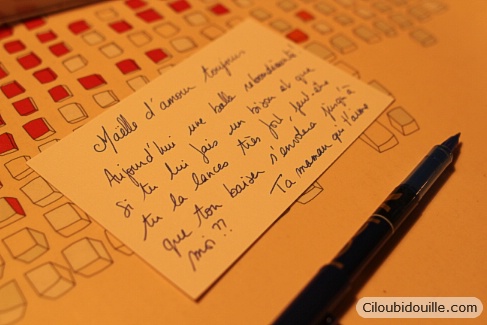 Maëlle d'amour toujours
Aujourd'hui une balle rebondissante
Si tu lui fais un bisou et que
tu la lances très fort, peut-être
que ton baiser s'envolera jusqu'à
moi ??
Ta maman qui t'aime
Ciloubidouille.com